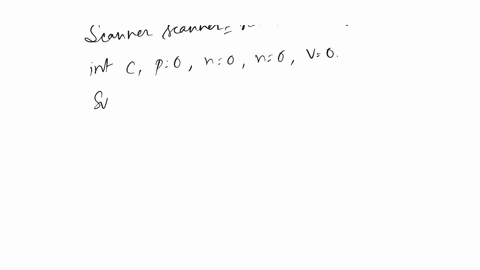 Scanner scanner=
int C, p=0, n=0, n=0, V=0.
Sy